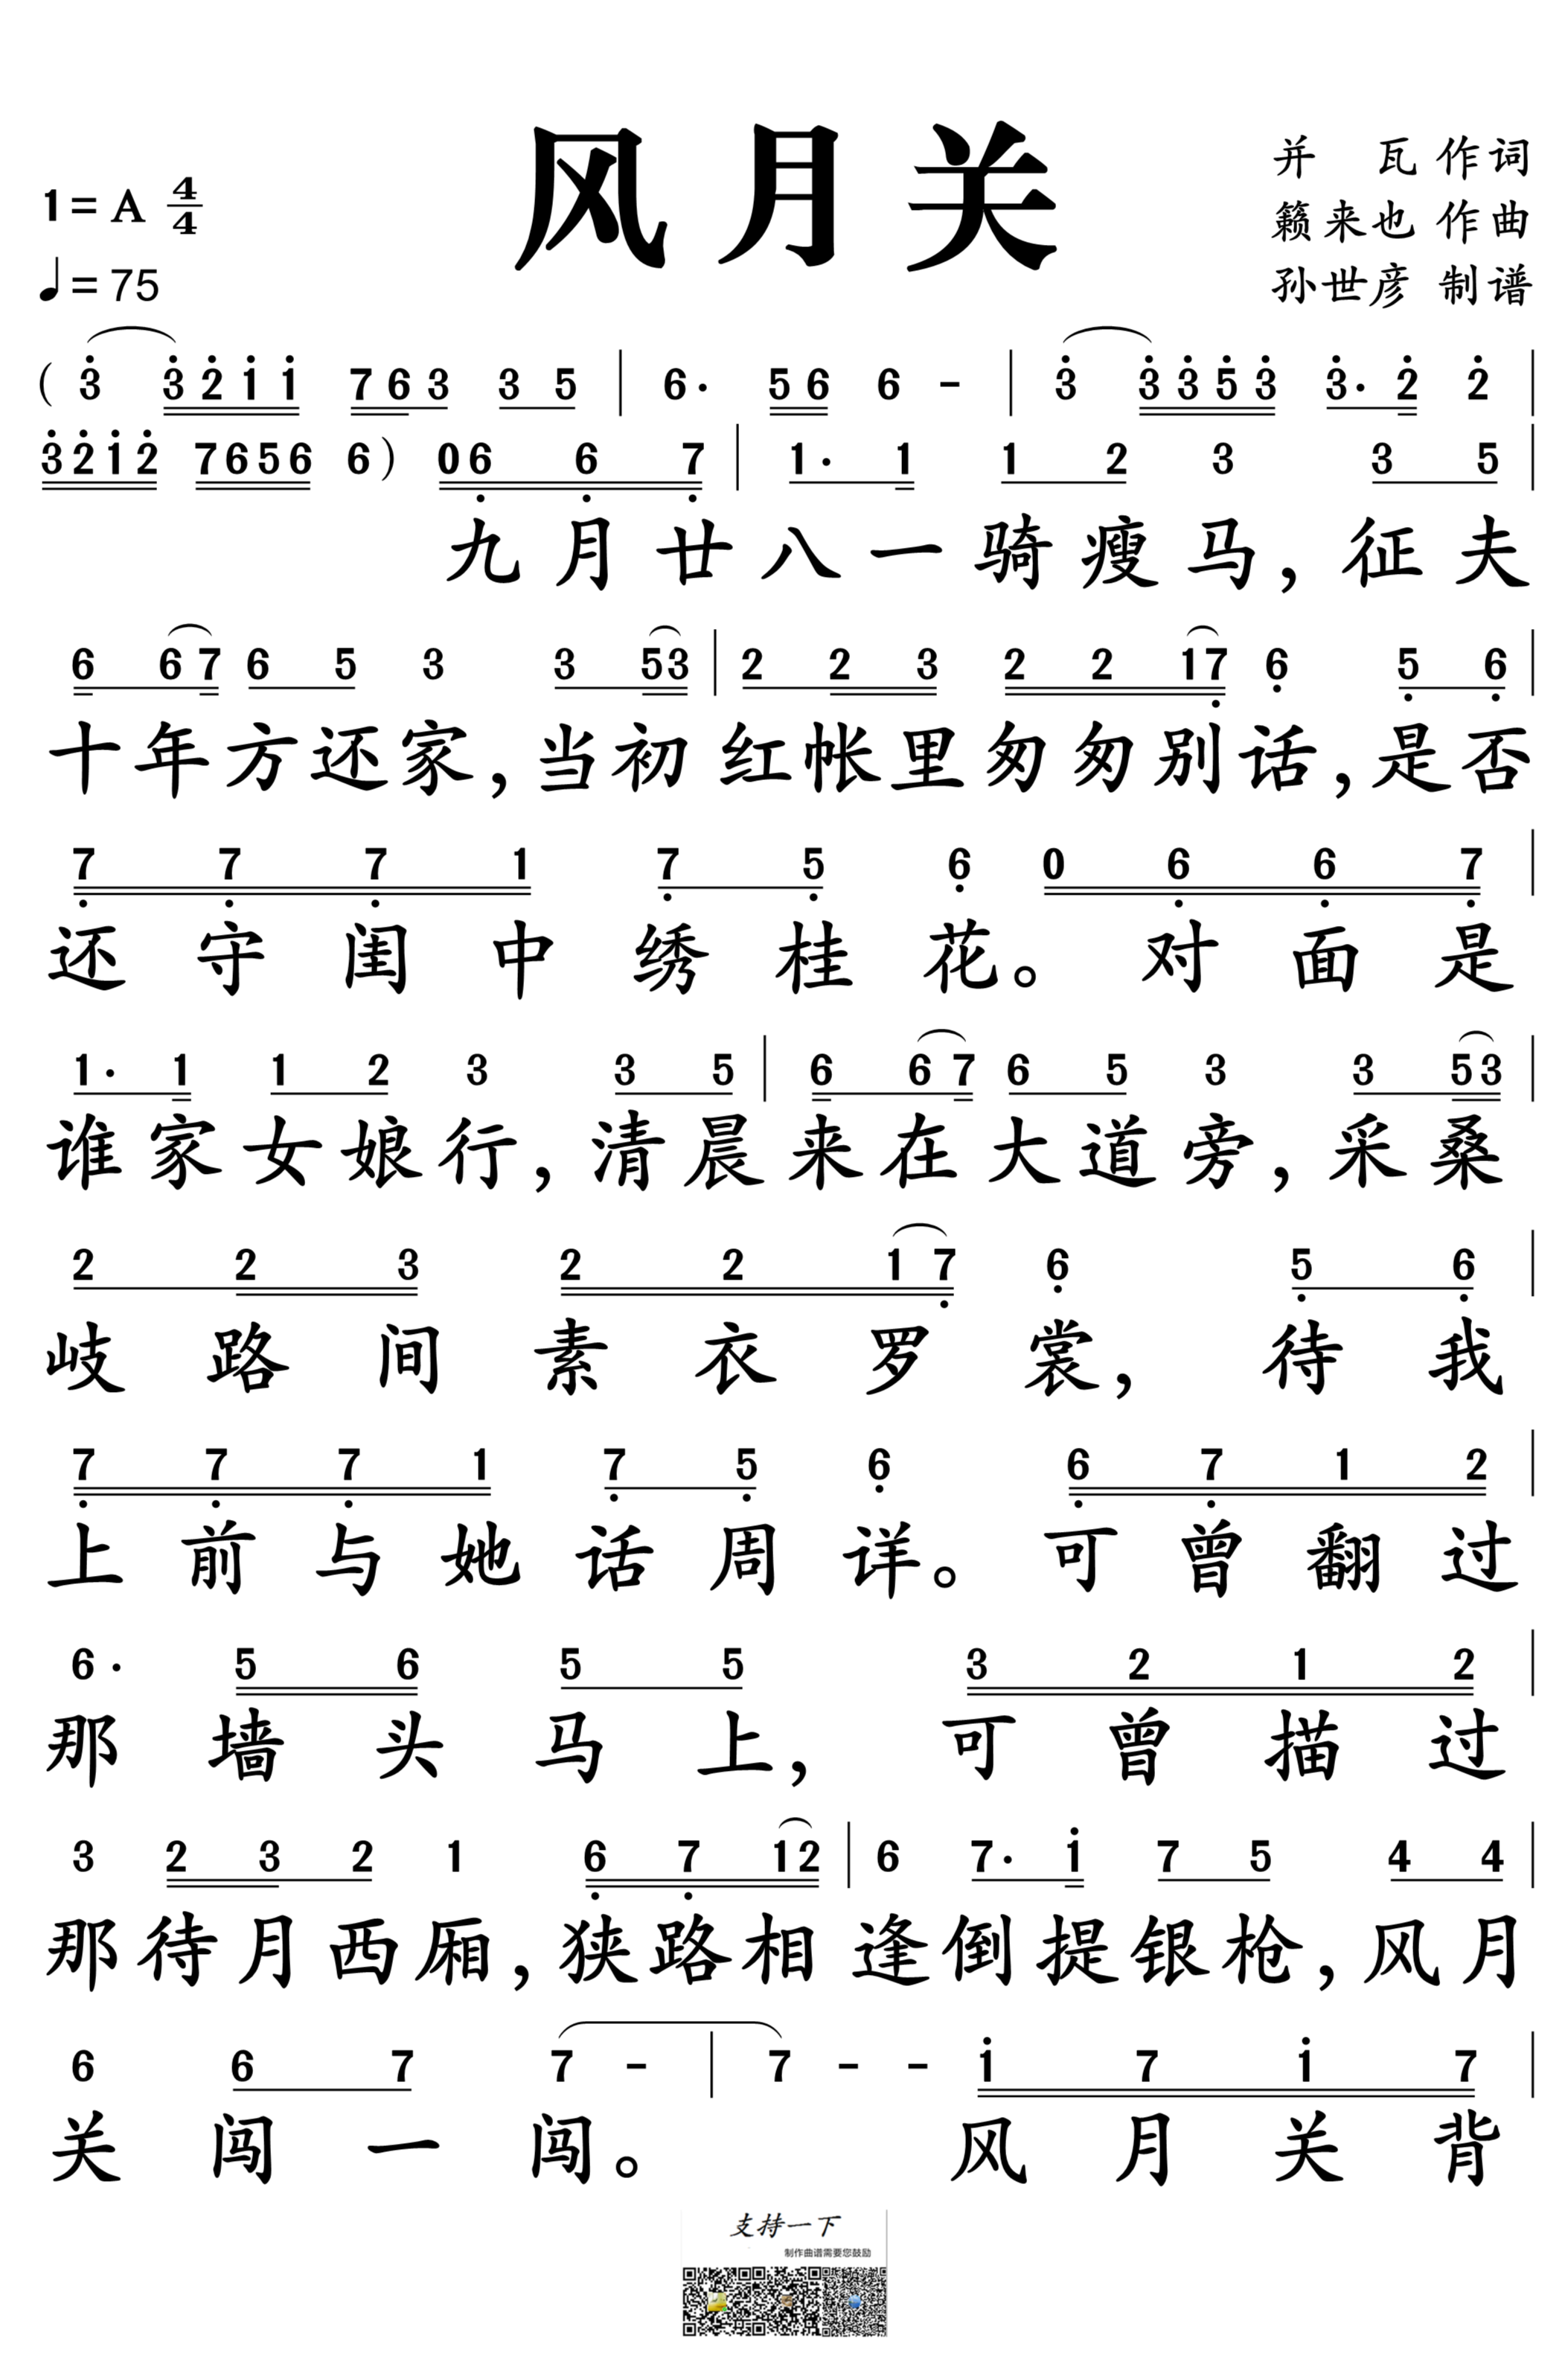 风月关
1= A 4/4
♩= 75
并 瓦 作词
籁来也 作曲
孙世彦 制谱
( 3̇ 3̇ 2̇ 1̇ 1̇ 7 6 3 3 5 | 6· 5 6 6 - | 3̇ 3̇ 3̇ 5̇ 3̇ 3̇· 2̇ 2̇ |
3̇ 2̇ 1̇ 2̇ 7 6 5 6 6 ) 0 6̣ 6̣ 7̣ | 1· 1 1 2 3 3 5 |
九月廿八一骑瘦马，征夫
6 6 7 6 5 3 3 5 3 | 2 2 3 2 2 1 7̣ 6̣ 5̣ 6̣ |
十年方还家，当初红帐里匆匆别话，是否
7̣ 7̣ 7̣ 1 7̣ 5̣ 6̣ 0 6̣ 6̣ 7̣ |
还守闺中绣桂花。对面是
1· 1 1 2 3 3 5 | 6 6 7 6 5 3 3 5 3 |
谁家女娘行，清晨来在大道旁，采桑
2 2 3 2 2 1 7̣ 6̣ 5̣ 6̣ |
岐路间素衣罗裳，待我
7̣ 7̣ 7̣ 1 7̣ 5̣ 6̣ 6̣ 7̣ 1 2 |
上前与她话周详。可曾翻过
6· 5 6 5 5 3 2 1 2 |
那墙头马上，可曾描过
3 2 3 2 1 6̣ 7̣ 1 2 | 6 7· 1̇ 7 5 4 4 |
那待月西厢，狭路相逢倒提银枪，风月
6 6 7 7 - | 7 - - 1̇ 7 1̇ 7 |
关闯一闯。风月关背
支持一下
制作曲谱需要您鼓励